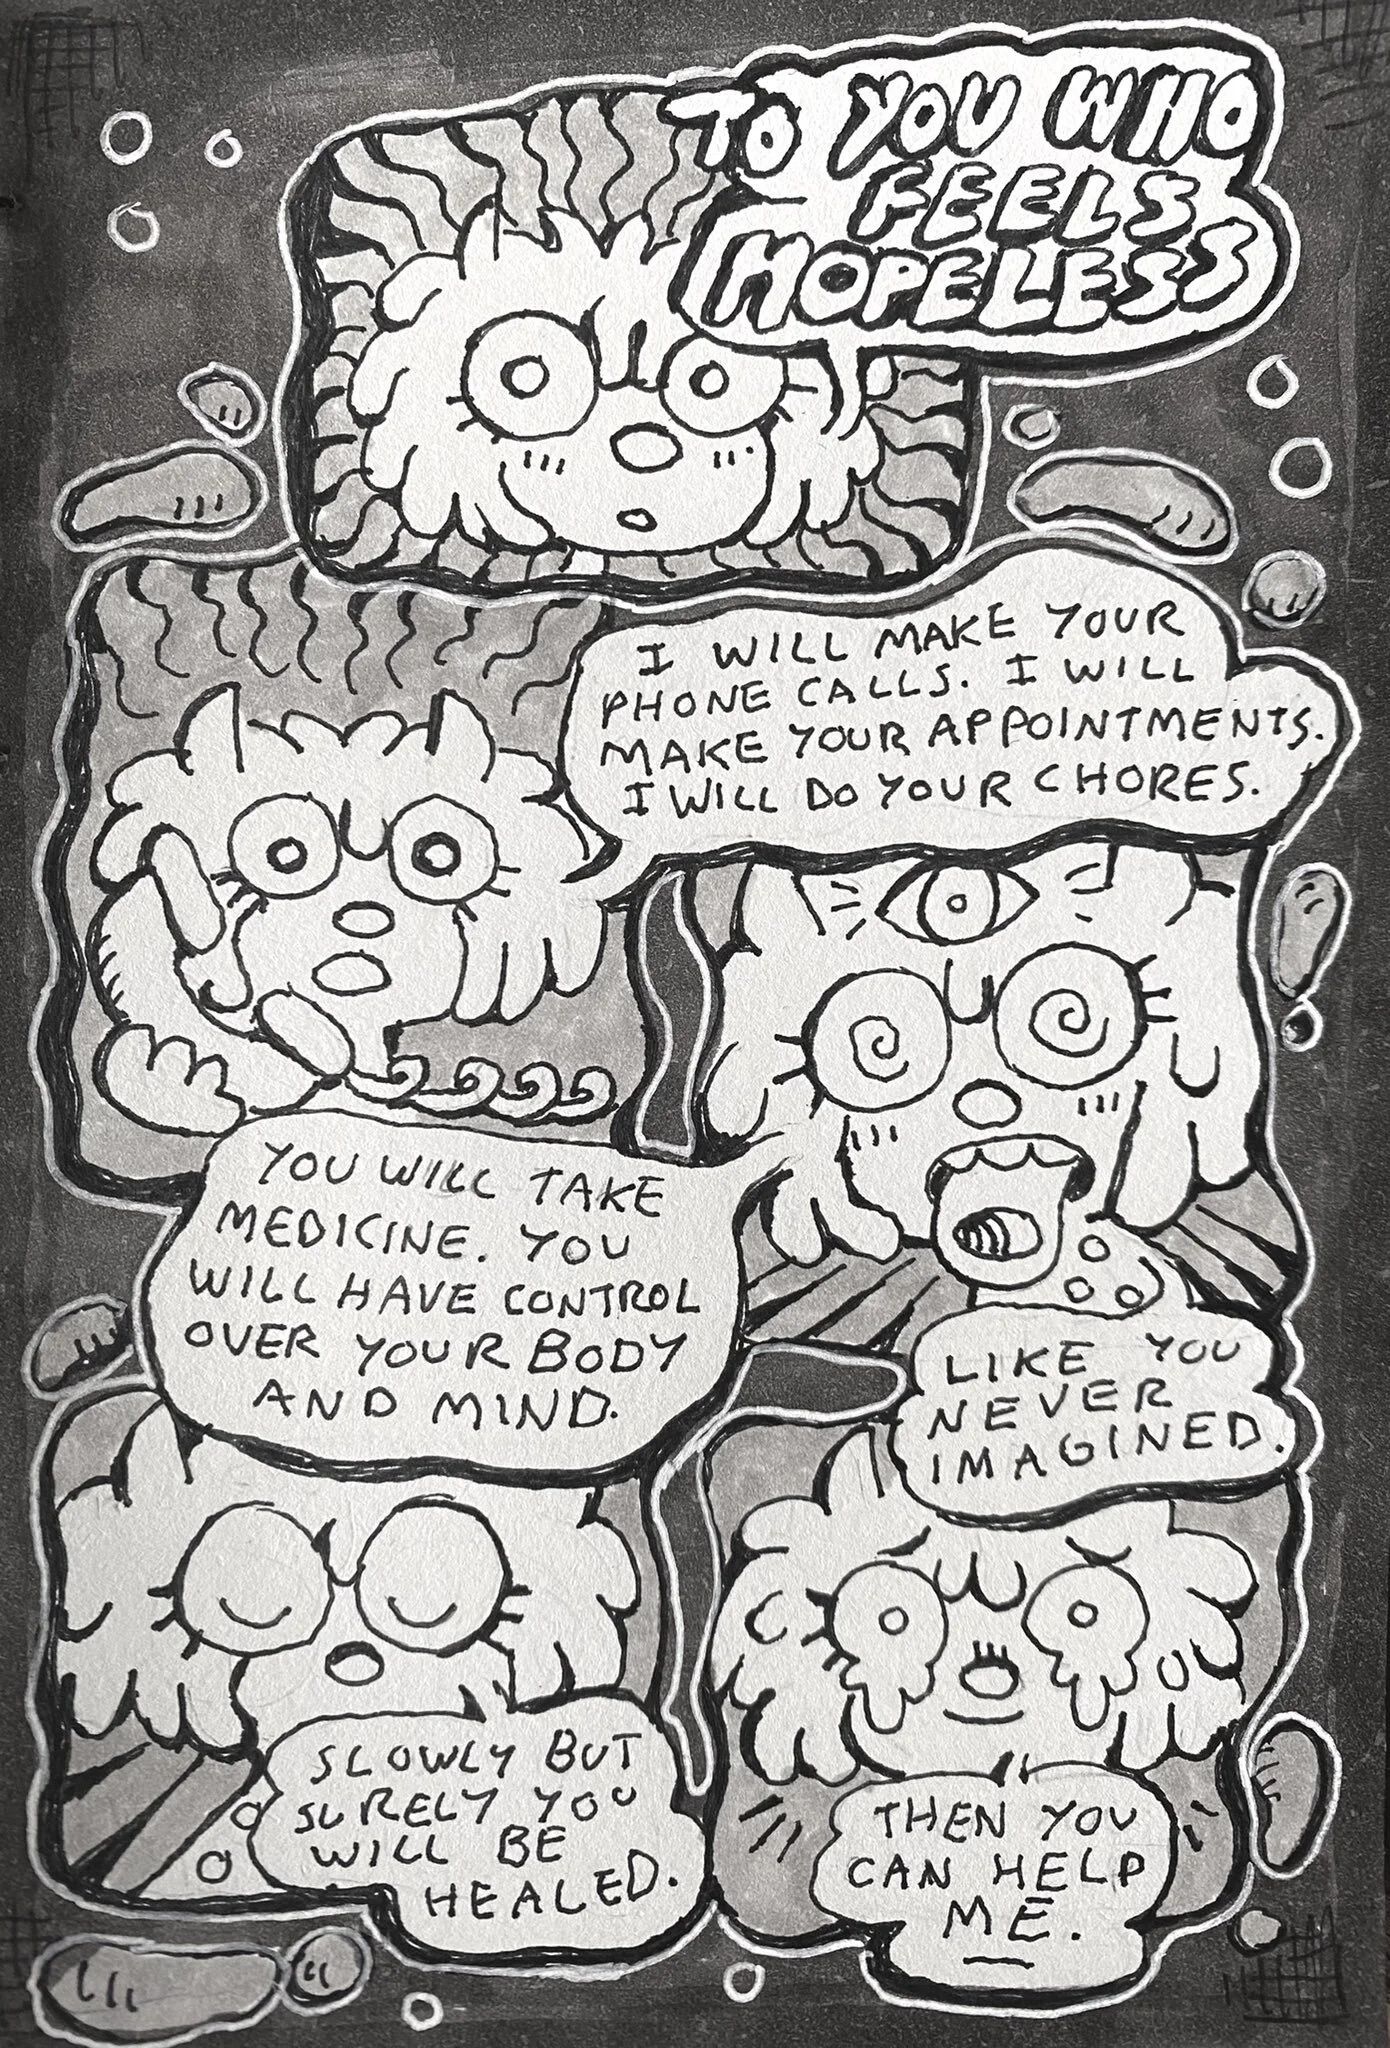 TO YOU WHO
FEELS
HOPELESS
I WILL MAKE YOUR
PHONE CALLS. I WILL
MAKE YOUR APPOINTMENTS.
I WILL DO YOUR CHORES.
YOU WILL TAKE
MEDICINE. YOU
WILL HAVE CONTROL
OVER YOUR BODY
AND MIND.
LIKE YOU
NEVER
IMAGINED.
SLOWLY BUT
SURELY YOU
WILL BE
HEALED.
THEN YOU
CAN HELP
ME.